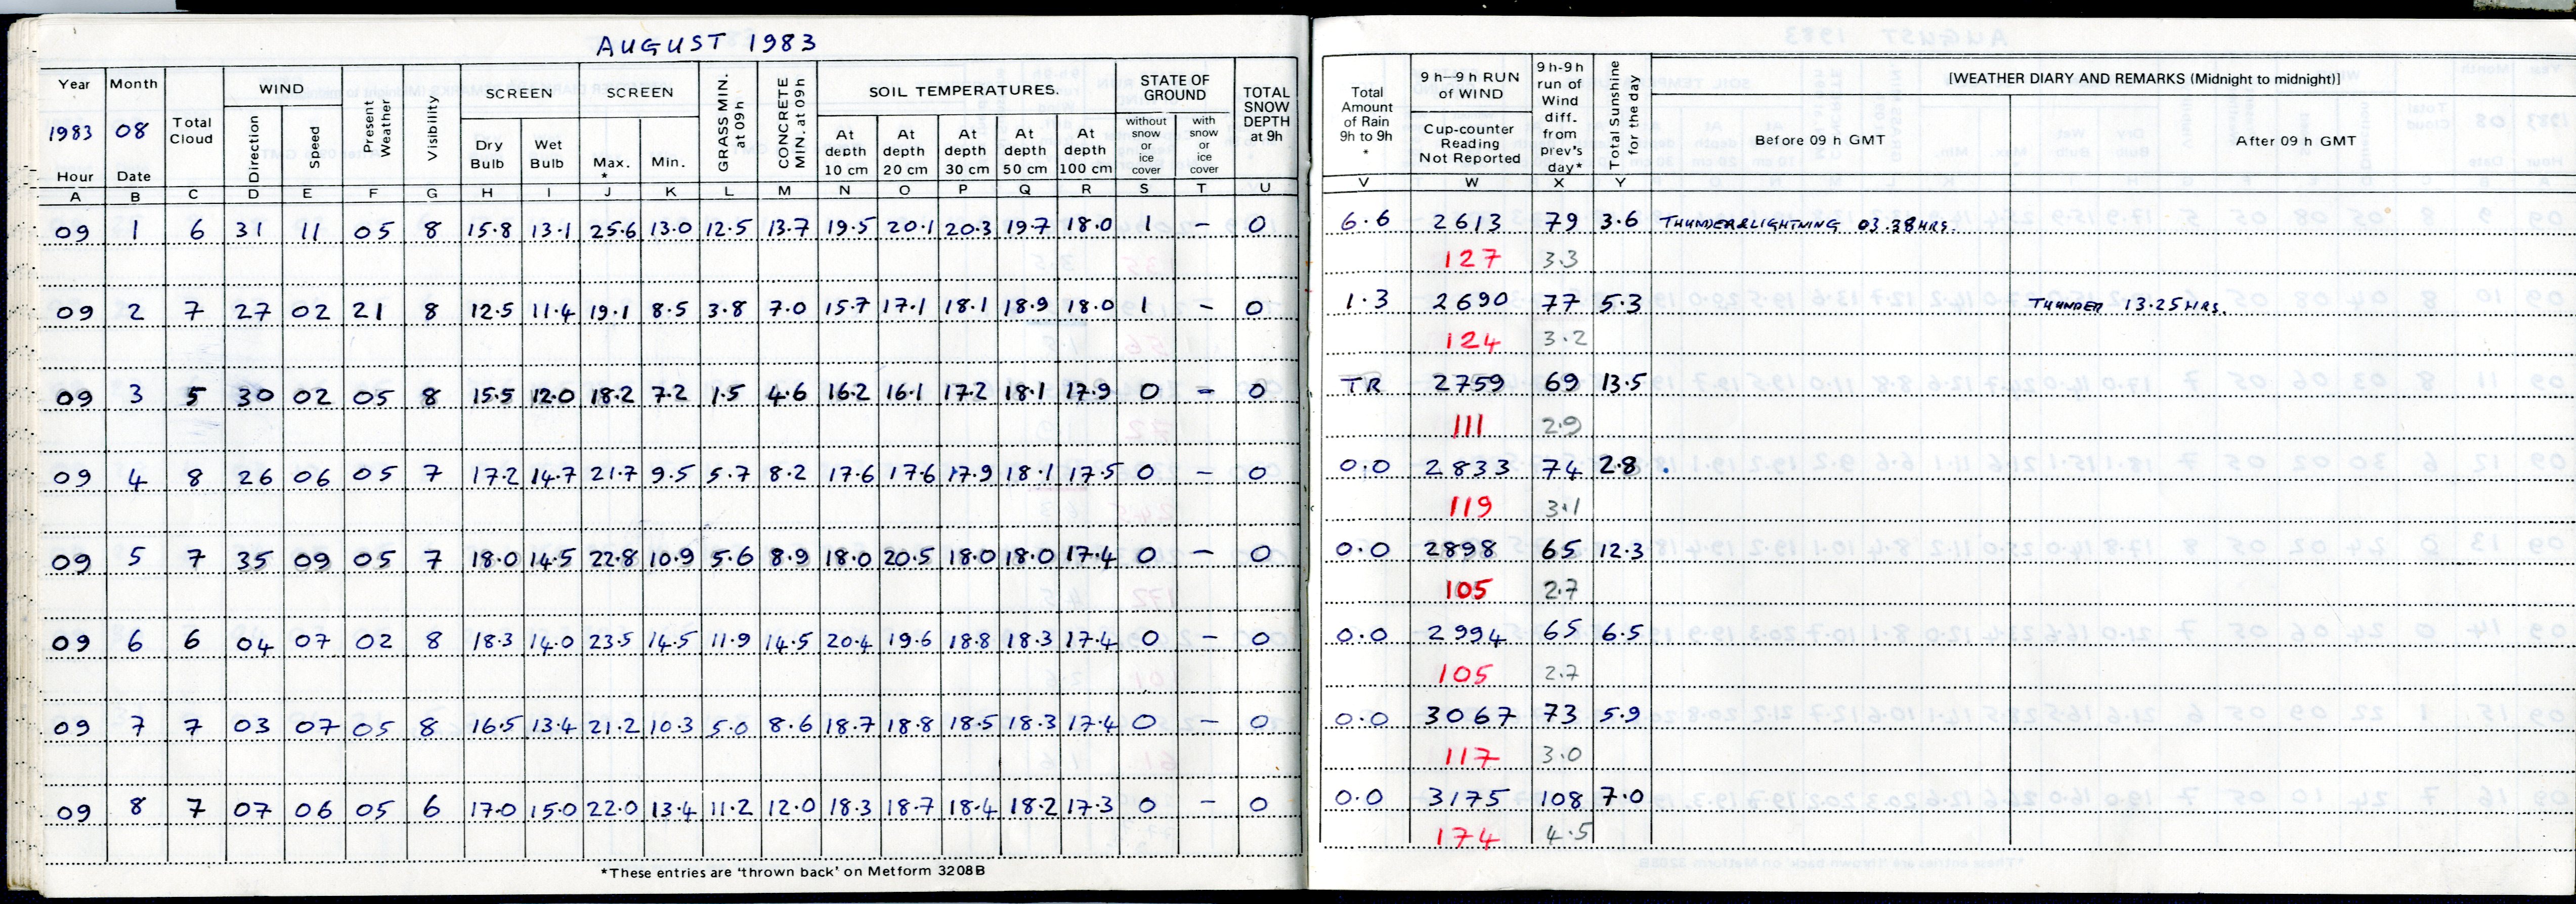 AUGUST 1983
Year Month Total Cloud WIND Present Weather Visibility SCREEN SCREEN GRASS MIN. at 09h CONCRETE MIN. at 09h SOIL TEMPERATURES. STATE OF GROUND TOTAL SNOW DEPTH at 9h Total Amount of Rain 9h to 9h * 9 h—9 h RUN of WIND 9h-9h run of Wind diff. from prev's day* Total Sunshine for the day [WEATHER DIARY AND REMARKS (Midnight to midnight)]
1983 08 Direction Speed Dry Bulb Wet Bulb Max. * Min. At depth 10 cm At depth 20 cm At depth 30 cm At depth 50 cm At depth 100 cm without snow or ice cover with snow or ice cover Cup-counter Reading Not Reported Before 09 h GMT After 09 h GMT
Hour Date
A B C D E F G H I J K L M N O P Q R S T U V W X Y
09 1 6 31 11 05 8 15.8 13.1 25.6 13.0 12.5 13.7 19.5 20.1 20.3 19.7 18.0 1 – 0 6.6 2613 79 3.6 THUNDER&LIGHTNING 03.38HRS.
127 3.3
09 2 7 27 02 21 8 12.5 11.4 19.1 8.5 3.8 7.0 15.7 17.1 18.1 18.9 18.0 1 – 0 1.3 2690 77 5.3 THUNDER 13.25HRS.
124 3.2
09 3 5 30 02 05 8 15.5 12.0 18.2 7.2 1.5 4.6 16.2 16.1 17.2 18.1 17.9 0 – 0 TR 2759 69 13.5
111 2.9
09 4 8 26 06 05 7 17.2 14.7 21.7 9.5 5.7 8.2 17.6 17.6 17.9 18.1 17.5 0 – 0 0.0 2833 74 2.8
119 3.1
09 5 7 35 09 05 7 18.0 14.5 22.8 10.9 5.6 8.9 18.0 20.5 18.0 18.0 17.4 0 – 0 0.0 2898 65 12.3
105 2.7
09 6 6 04 07 02 8 18.3 14.0 23.5 14.5 11.9 14.5 20.4 19.6 18.8 18.3 17.4 0 – 0 0.0 2994 65 6.5
105 2.7
09 7 7 03 07 05 8 16.5 13.4 21.2 10.3 5.0 8.6 18.7 18.8 18.5 18.3 17.4 0 – 0 0.0 3067 73 5.9
117 3.0
09 8 7 07 06 05 6 17.0 15.0 22.0 13.4 11.2 12.0 18.3 18.7 18.4 18.2 17.3 0 – 0 0.0 3175 108 7.0
174 4.5
*These entries are 'thrown back' on Metform 3208B